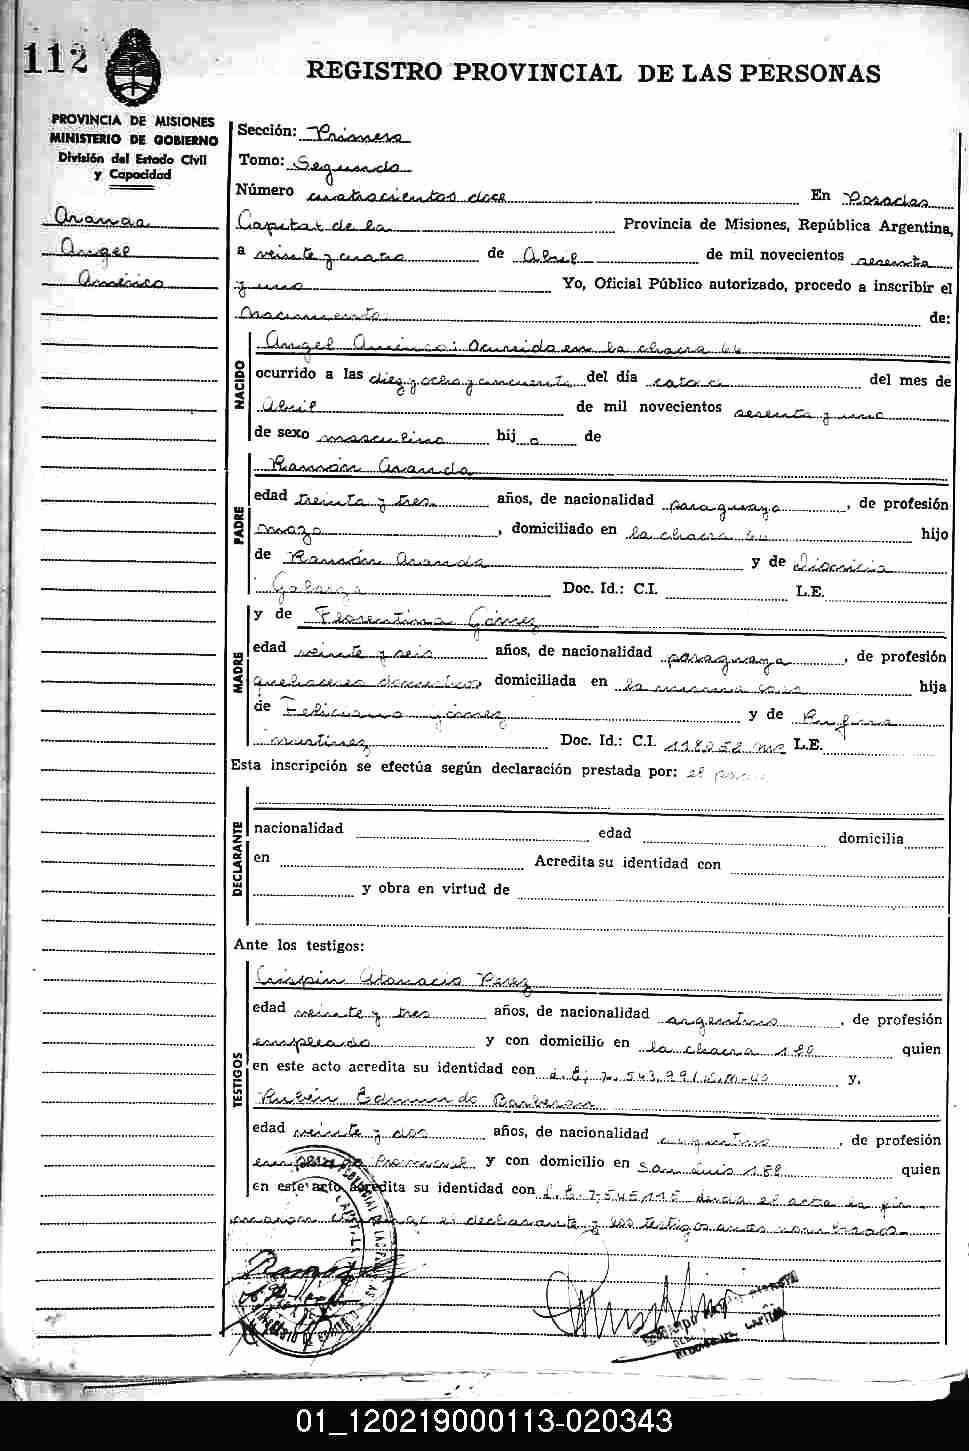 112
REGISTRO PROVINCIAL DE LAS PERSONAS
PROVINCIA DE MISIONES
MINISTERIO DE GOBIERNO
División del Estado Civil
y Capacidad
Aranda
Angel
Américo
Sección: Primera
Tomo: Segundo
Número cuatrocientos doce En Posadas
Capital de la Provincia de Misiones, República Argentina,
a veinte y cuatro de Abril de mil novecientos sesenta
y uno Yo, Oficial Público autorizado, procedo a inscribir el
nacimiento de:
NACIDO
Angel Américo: Ocurrido en la chacra 66
ocurrido a las diez y ocho y cincuenta del día catorce del mes de
Abril de mil novecientos sesenta y uno
de sexo masculino hijo de
PADRE
Ramón Aranda
edad treinta y tres años, de nacionalidad paraguaya, de profesión
mozo, domiciliado en la chacra 66 hijo
de Ramón Aranda y de Dionicia
Galarza Doc. Id.: C.I. L.E.
MADRE
y de Florentina Gómez
edad veinte y seis años, de nacionalidad paraguaya, de profesión
quehaceres domesticos, domiciliada en la misma casa hija
de Feliciano Gómez y de Rufina
Martinez Doc. Id.: C.I. L.E.
Esta inscripción se efectúa según declaración prestada por: el
DECLARANTE
nacionalidad edad domicilia
en Acredita su identidad con
y obra en virtud de
Ante los testigos:
TESTIGOS
Crispín Atanacio Perez
edad veinte y tres años, de nacionalidad argentino, de profesión
empleado y con domicilio en la chacra 180 quien
en este acto acredita su identidad con y.
Rubén Edmundo
edad veinte y dos años, de nacionalidad argentino, de profesión
Provincial y con domicilio en San Luis 188 quien
en este acto acredita su identidad con L.E. 7.545.115
el declarante y los testigos antes nombrados
Ramón
01_120219000113-020343